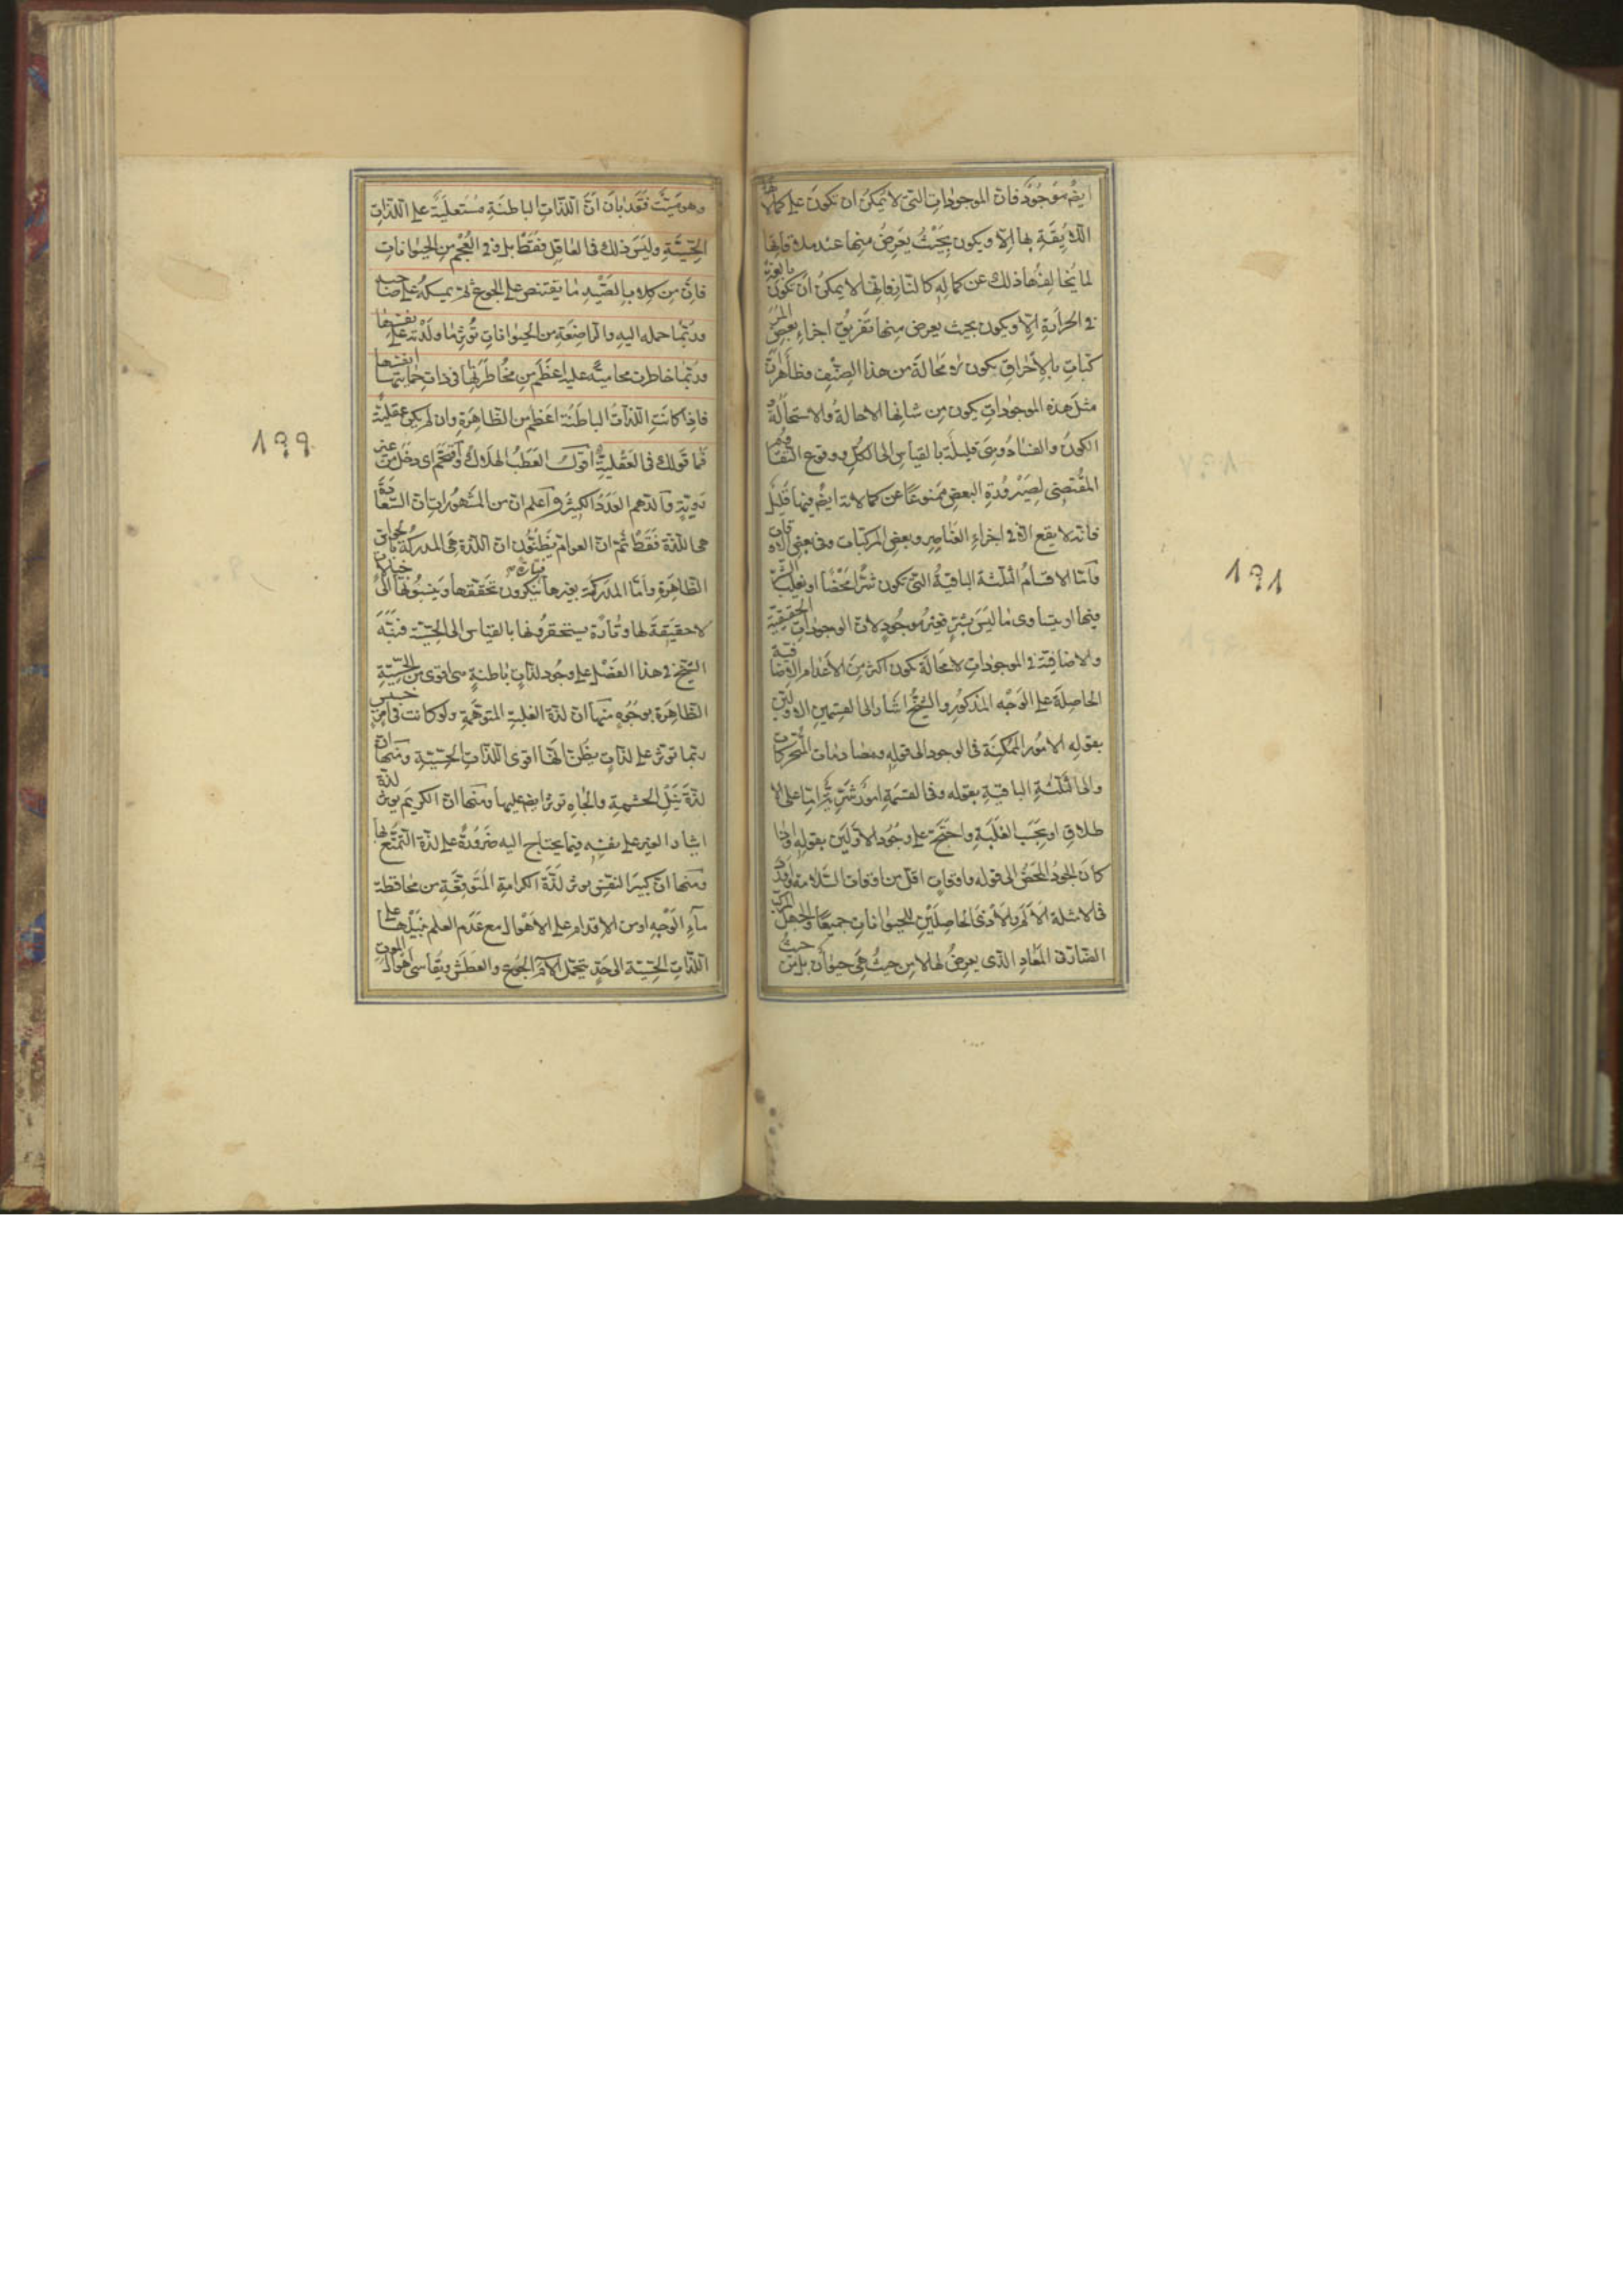 ايضم موجود فان الموجودات التى لا يمكن ان تكون على كمالاتها
اللايقة بها الا ويكون بحيث يعرض منها عند ملاقاتها
لما يخالفها ذلك عن كماله كالنار فانها لا يمكن ان تكون بالغة
فى الحرارة الا ويكون بحيث يعرض منها تفريق اجزاء بعض المر
كبات بالاحراق يكون لا محالة من هذا الصنف فظاهر ان
مثل هذه الموجودات يكون من شانها الاحالة والاستحالة و
الكون والفساد وهى قليلة بالقياس الى الكل ووقوع التفاوم
المقتضى لصيرورة البعض ممنوعا عن كمالاته ايضم فيها قليل
فانه لا يقع الا فى اجزاء العناصر وبعض المركبات وفى بعض الاوقات
فاما الاقسام الثلثة الباقية التى تكون شرا محضا او يغلب الشر
فيها او يتساوى ما ليس بشر فغير موجود لان الوجودات الحقيقية
والاضافية فى الموجودات لا محالة تكون اكثر من الاعدام الاضافية
الحاصلة على الوجه المذكور والشيخ اشار الى القسمين الاولين
بقوله الامور الممكنة فى الوجود الى قوله ومصادمات المتحركات
والى الثلثة الباقية بقوله وفى القسمة امور شرية اما على الا
طلاق او بحسب الغلبة واحتج على وجود الاولين بقوله واذا
كان الجود المحض الى قوله واوقات اقل من اوقات السلامة واورد
فى الامثلة الالم والاذى الحاصلين للحيوانات جميعا والجهل المركب
الضار فى المعاد الذى يعرض لها لا من حيث هى حيوان بل من حيث
١٩٨
وهو ميت فقد بان ان اللذات الباطنة مستعلية على اللذات
الحسية وليس ذلك فى العاقل فقط بل وفى العجم من الحيوانات
فان من كلاب الصيد ما يقتنص على الجوع ثم يمسكه على صاحبه
وربما حمله اليه والمرضعة من الحيوانات تؤثر ما ولدته على نفسها
وربما خاطرت محامية عليه اعظم من مخاطرتها فى ذات حمايتها نفسها
فاذا كانت اللذات الباطنة اعظم من الظاهرة وان لم يكن عقلية
فما قولك فى العقلية اقول العطب الهلاك واقتحم اى دخل من غير
روية والدهم العدد الكثير واعلم ان من المشهورات ان السعادة
هى اللذة فقط ثم ان العوام يظنون ان اللذة هى المدركة بالحواس
الظاهرة واما المدركة بغيرها فتارة ينكرون تحققها وينسبونها الى خيالات
لا حقيقة لها وتارة يستحقرونها بالقياس الى الحسية فنبه
الشيخ فى هذا الفصل على وجود لذات باطنة هى اقوى من الحسية
الظاهرة بوجوه منها ان لذة الغلبة المتوهمة ولو كانت فى امر خسيس
ربما تؤثر على لذات يظن انها اقوى اللذات الحسية ومنها ان
لذة نيل الحشمة والجاه تؤثر ايضم عليها ومنها ان الكريم يؤثر لذة
ايثار الغير على نفسه فيما يحتاج اليه ضرورة على لذة التمتع بها
ومنها ان كبير النفس يؤثر لذة الكرامة المتوقعة من محافظة
ماء الوجه او من الاقدام على الاهوال مع عدم العلم بنيلها على
اللذات الحسية الى حد يتحمل الام الجوع والعطش ويقاسى اهوال الموت
١٩٩